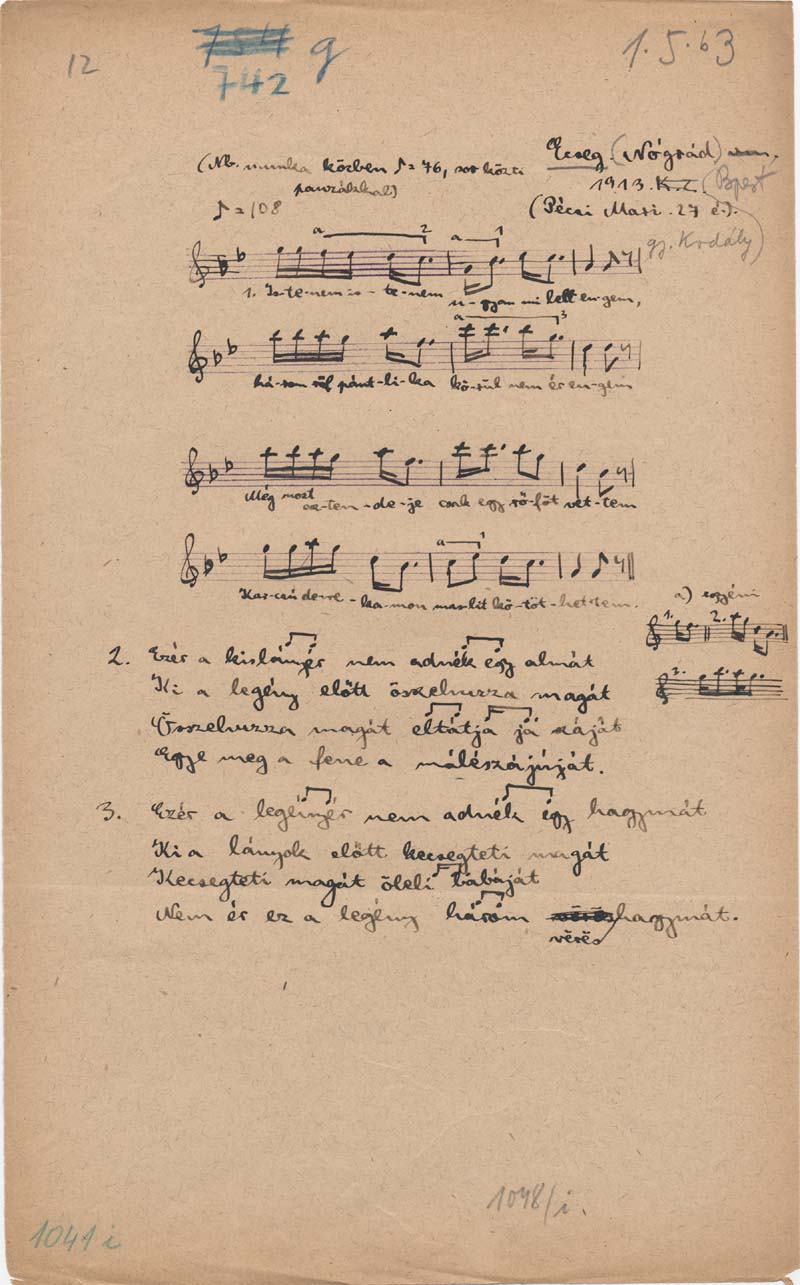 12
754 g
742
1.5.63
(Nb. munka közben ♪=76, sor közti
pauzákkal)
♪=108
Ecseg (Nógrád)
1913. K.Z. (Bpest
(Pécsi Mari 27 é.).
gy. Kodály)
a 2 a 1
1. Is-te-nem is-te-nem u-gyan mi lett en-gem,
a 3
há-rom rőf pánt-li-ka körül nem ér en-gem
Még most esz-ten-de-je csak egy rő-föt vet-tem
a 1
Kar-csú dere-ka-mon mas-lit kö-töt-het-tem.
a) egyéni
1. 2.
3.
2. Ezér a kislányér nem adnék egy almát
Ki a legény előtt öszelhuzza magát
Összelhuzza magát eltátja já száját
Egye meg a fene a málészájúját.
3. Ezér a legényér nem adnék egy hagymát
Ki a lányok előtt kecsegteti magát
Kecsegteti magát öleli babáját
Nem ér ez a legény három vörös hagymát.
vérës
1048/i.
1041 i